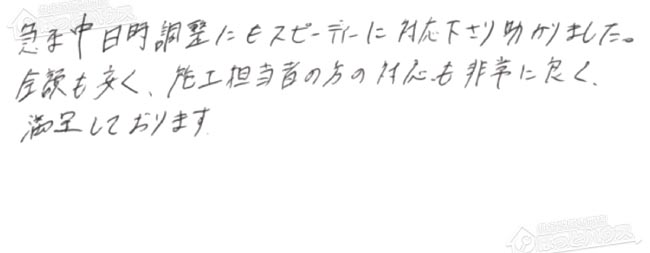 急な中日時調整にもスピーディーに対応下さり助かりました。
金額も安く、施工担当者の方の対応も非常に良く、
満足しております